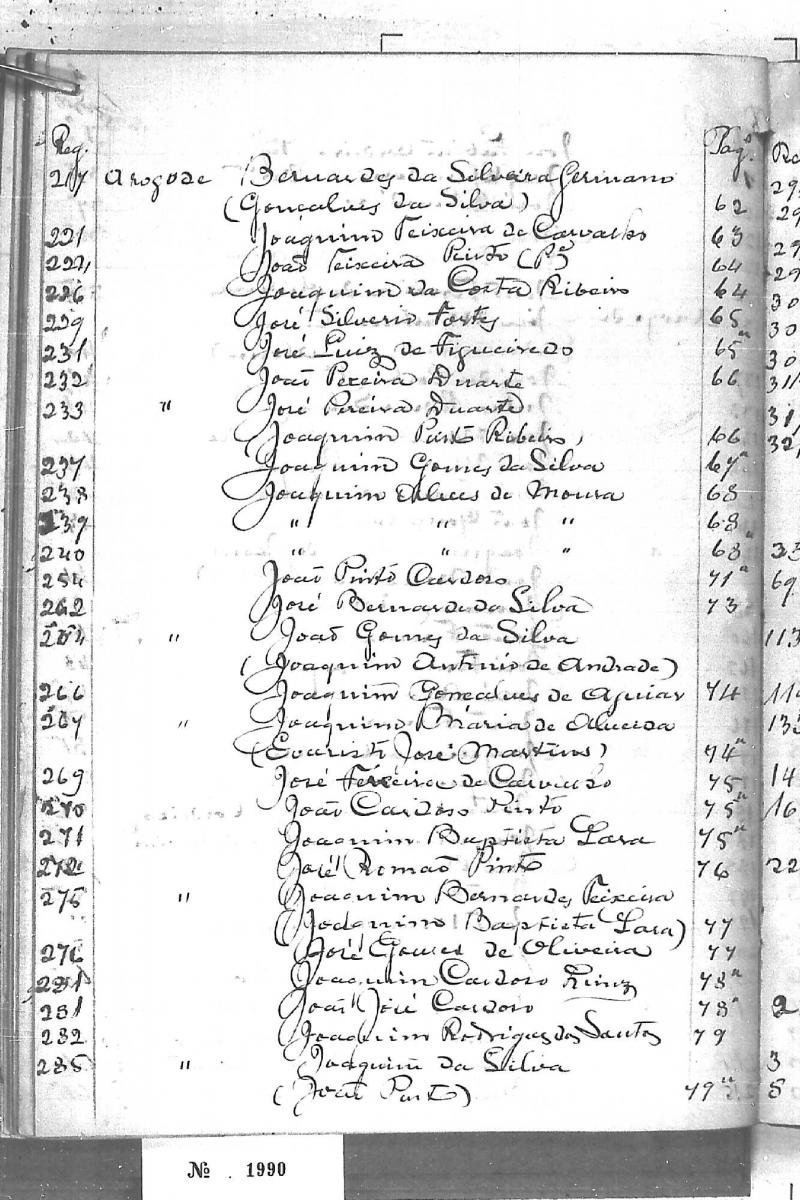 Reg. Pag.
217 a rogo de Bernardes da Silveira Germano
(Gonçalves da Silva) 62
221 Joaquim Teixeira de Carvalho 63
224 João Teixeira Pinto (Pe) 64
226 Joaquim da Costa Ribeiro 64
229 José Silverio Fortes 65
231 José Luiz de Figueiredo 65"
232 João Pereira Duarte 66
233 " José Pereira Duarte
(Joaquim Pinto Ribeiro) 66
237 Joaquim Gomes da Silva 67"
238 Joaquim Alves de Moura 68
239 " " " 68
240 " " " 68"
254 João Pinto Cardoso 71"
262 José Bernardes da Silva 73
264 " João Gomes da Silva
(Joaquim Antonio de Andrade)
266 Joaquim Gonçalves de Aguiar 74
267 " Joaquina Maria de Almeida
(Evaristo José Martins) 74"
269 José Teixeira de Carvalho 75
270 João Cardoso Pinto 75"
271 Joaquim Baptista Lara 75"
272 José Romão Pinto 76
275 " Joaquim Bernardes Teixeira
(Joaquim Baptista Lara) 77
276 José Gomes de Oliveira 77
281 Joaquim Cardoso 78"
281 João José Cardoso 78"
282 Joaquim Rodrigues dos Santos 79
285 " Joaquim da Silva
(João Pinto) 79"
№ 1990